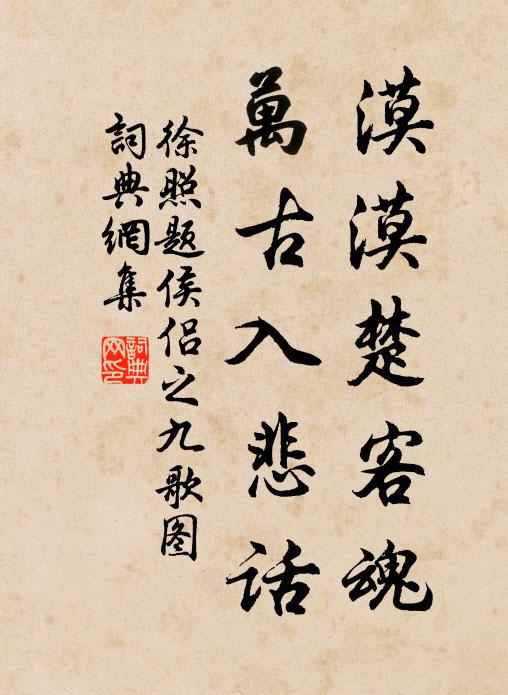 漠漠楚客魂
萬古入悲话
徐照题侯侣之九歌图
詞典網集
詞典网印